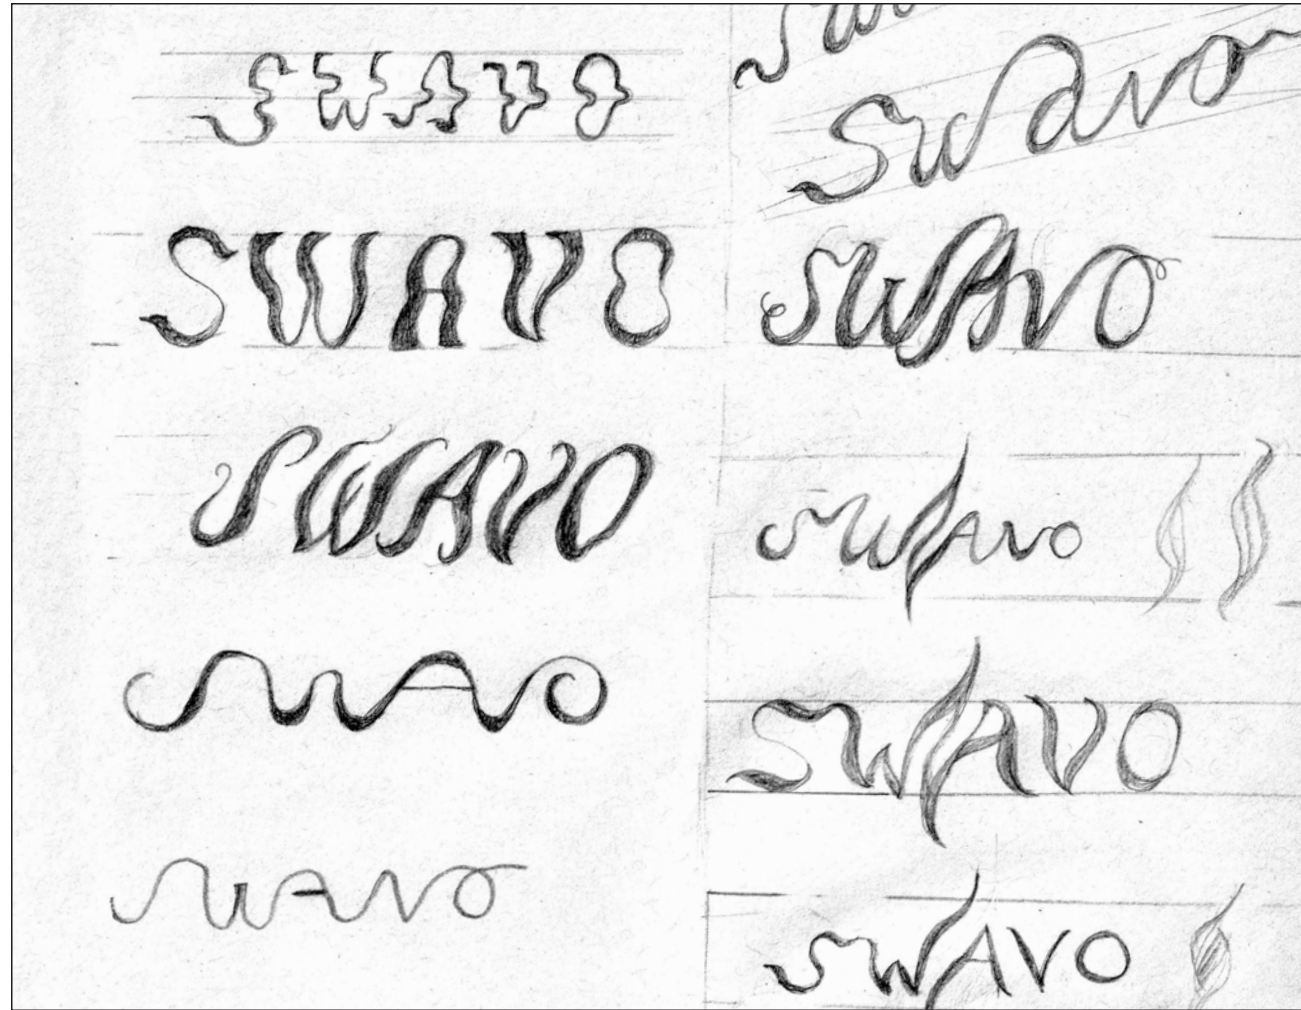 SWAVO
SWAVO
SWAVO
SWAVO
SWAVO
Swa
Swavo
SWAVO
SWAVO
SWAVO
SWAVO